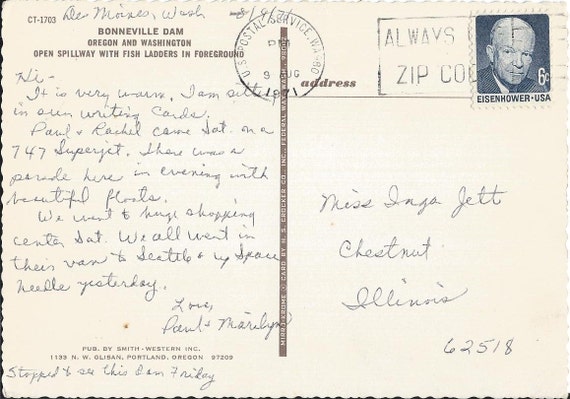 Des Moines, Wash 8/9/71
CT-1703
BONNEVILLE DAM
OREGON AND WASHINGTON
OPEN SPILLWAY WITH FISH LADDERS IN FOREGROUND
Hi-
It is very warm. I am sitting
in sun writing cards.
Paul & Rachel came Sat. on a
747 Superjet. There was a
parade here in evening with
beautiful floats.
We went to huge shopping
center Sat. We all went in
their van to Seattle & up Space
needle yesterday.
Love,
Paul & Marilyn
PUB. BY SMITH-WESTERN INC.
1133 N.W. GLISAN, PORTLAND, OREGON 97209
Stopped to see this dam Friday
MIRRO-KROME CARD BY H. S. CROCKER CO., INC.
U.S. POSTAL SERVICE, WA
PM
9 AUG
1971
ALWAYS USE
ZIP CODE
6¢
EISENHOWER·USA
address
Miss Inga Jett
Chestnut
Illinois
62518